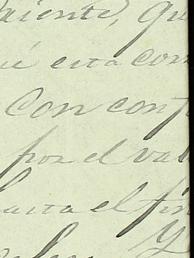 aiente, qu
é esta com
Con conf
por el val
hasta el fin
Y